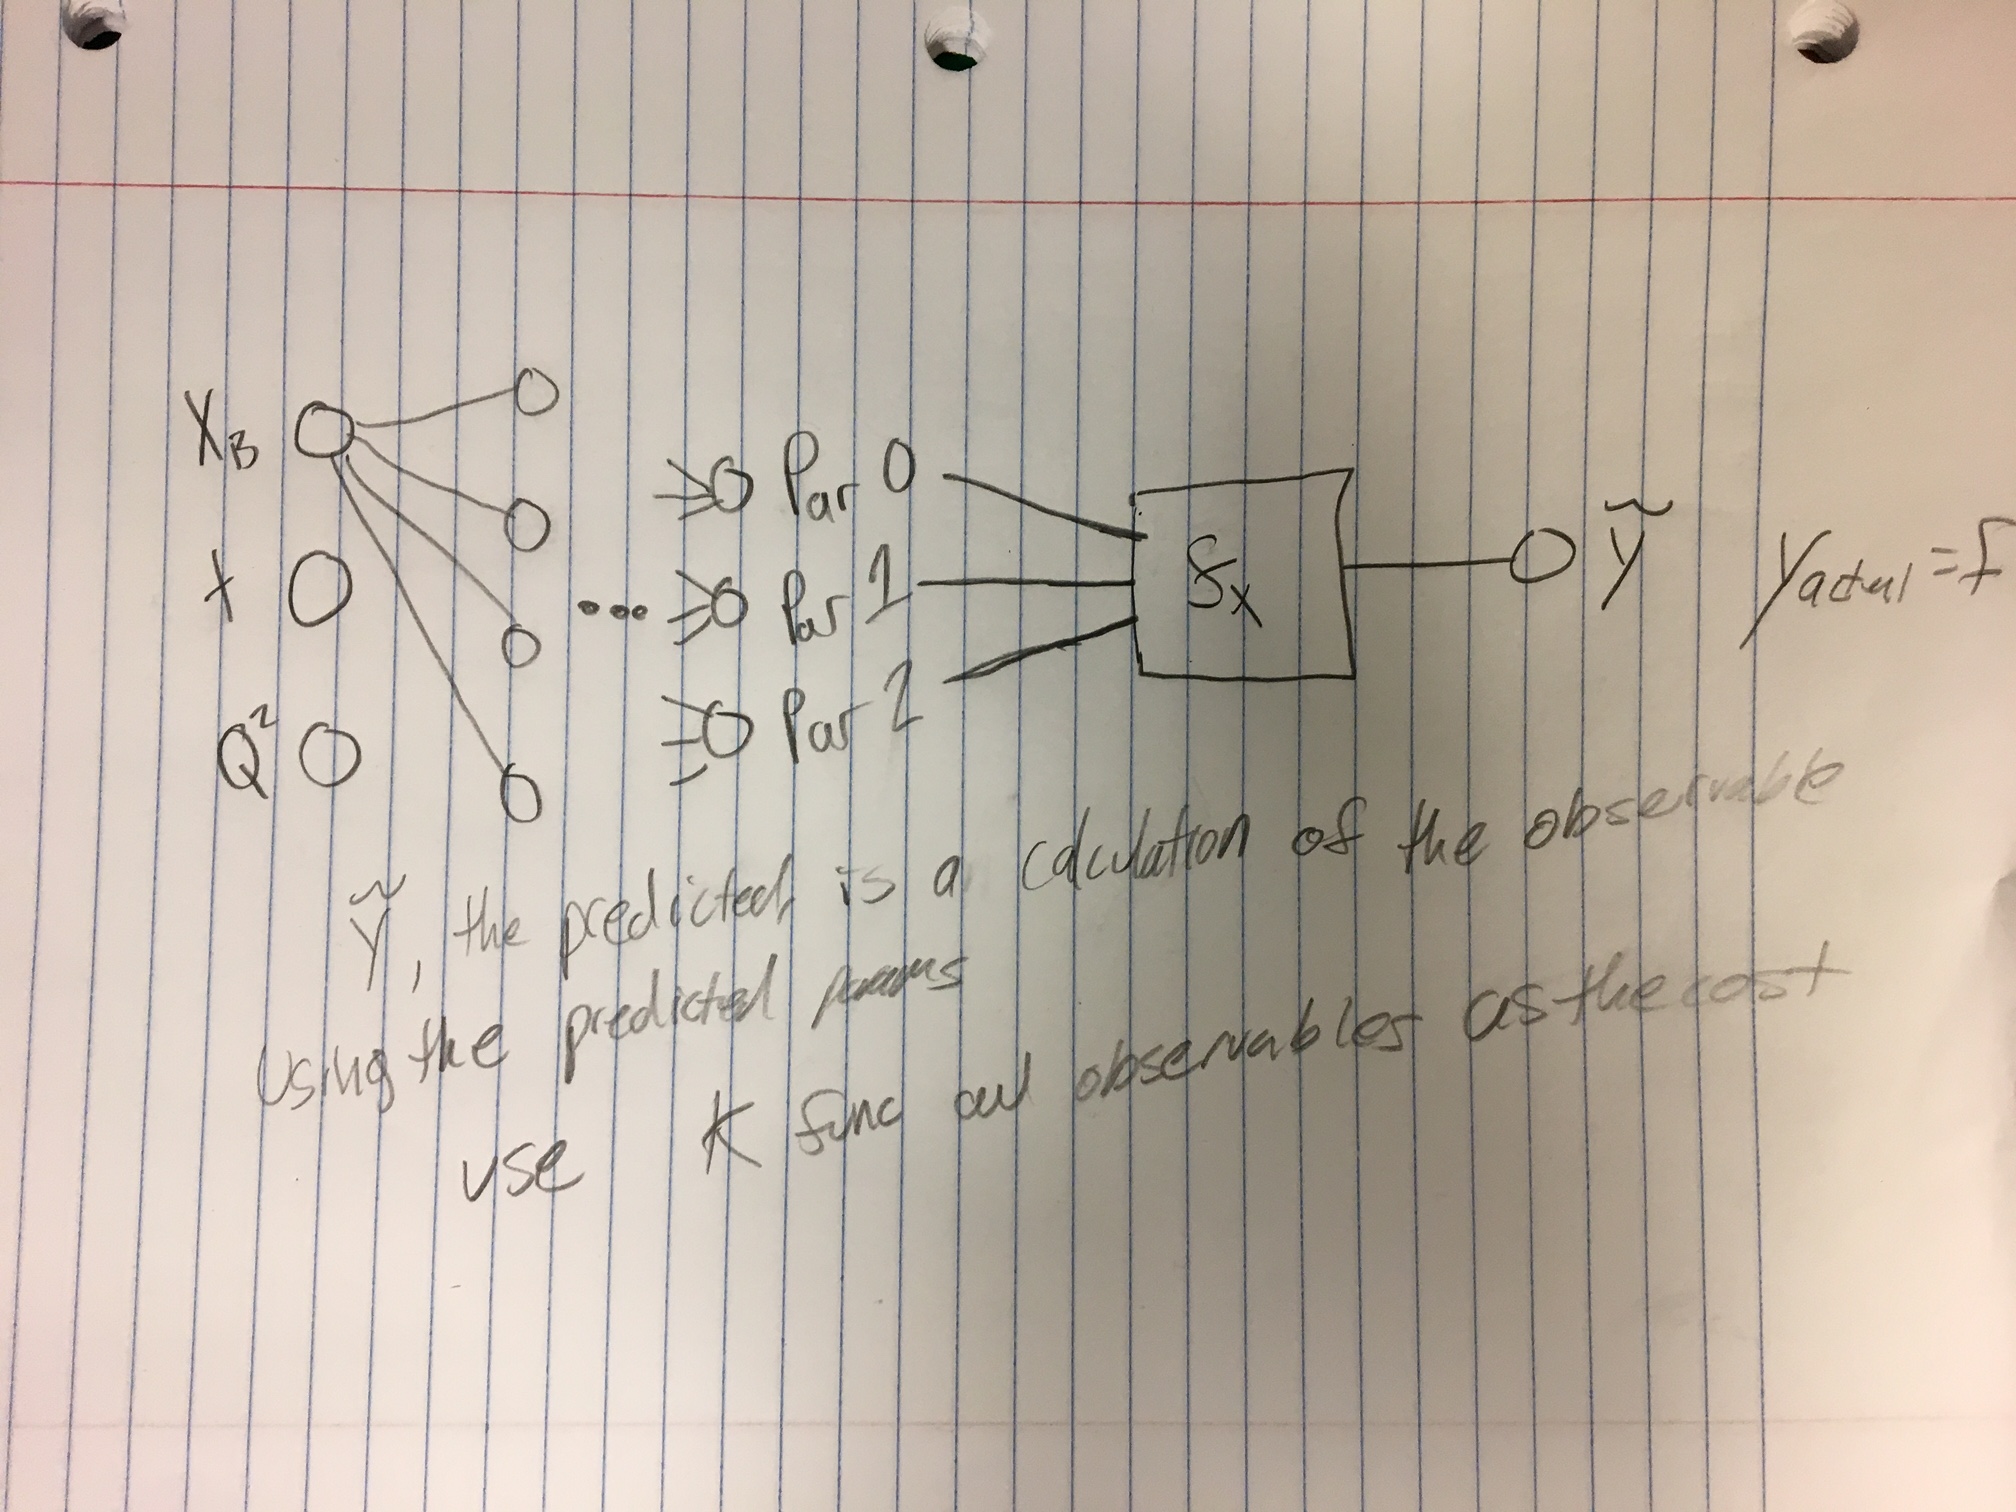 X_B
t
Q²
Par 0
Par 1
Par 2
Ỹ
Y actual = F
Ỹ, the predicted, is a calculation of the observable
Using the predicted params
use K func and observables as the cost